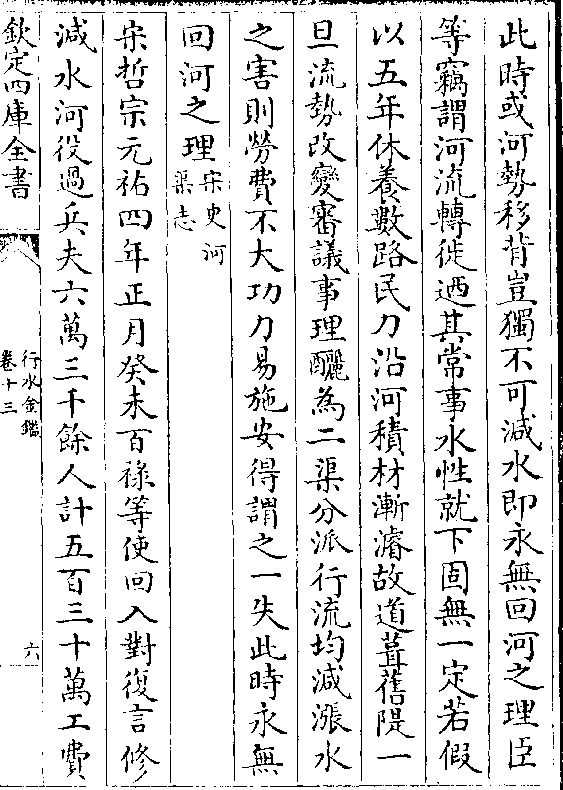 此時或河勢移背豈獨不可減水即永無回河之理臣
等竊謂河流轉徙迺其常事水性就下固無一定若假
以五年休養數路民力沿河積材漸濬故道葺舊隄一
旦流勢改變審議事理釃為二渠分派行流均減漲水
之害則勞費不大功力易施安得謂之一失此時永無
回河之理宋史河
渠志
宋哲宗元祐四年正月癸未百祿等使回入對復言修
減水河役過兵夫六萬三千餘人計五百三十萬工費
欽定四庫全書
行水金鑑
卷十三
六